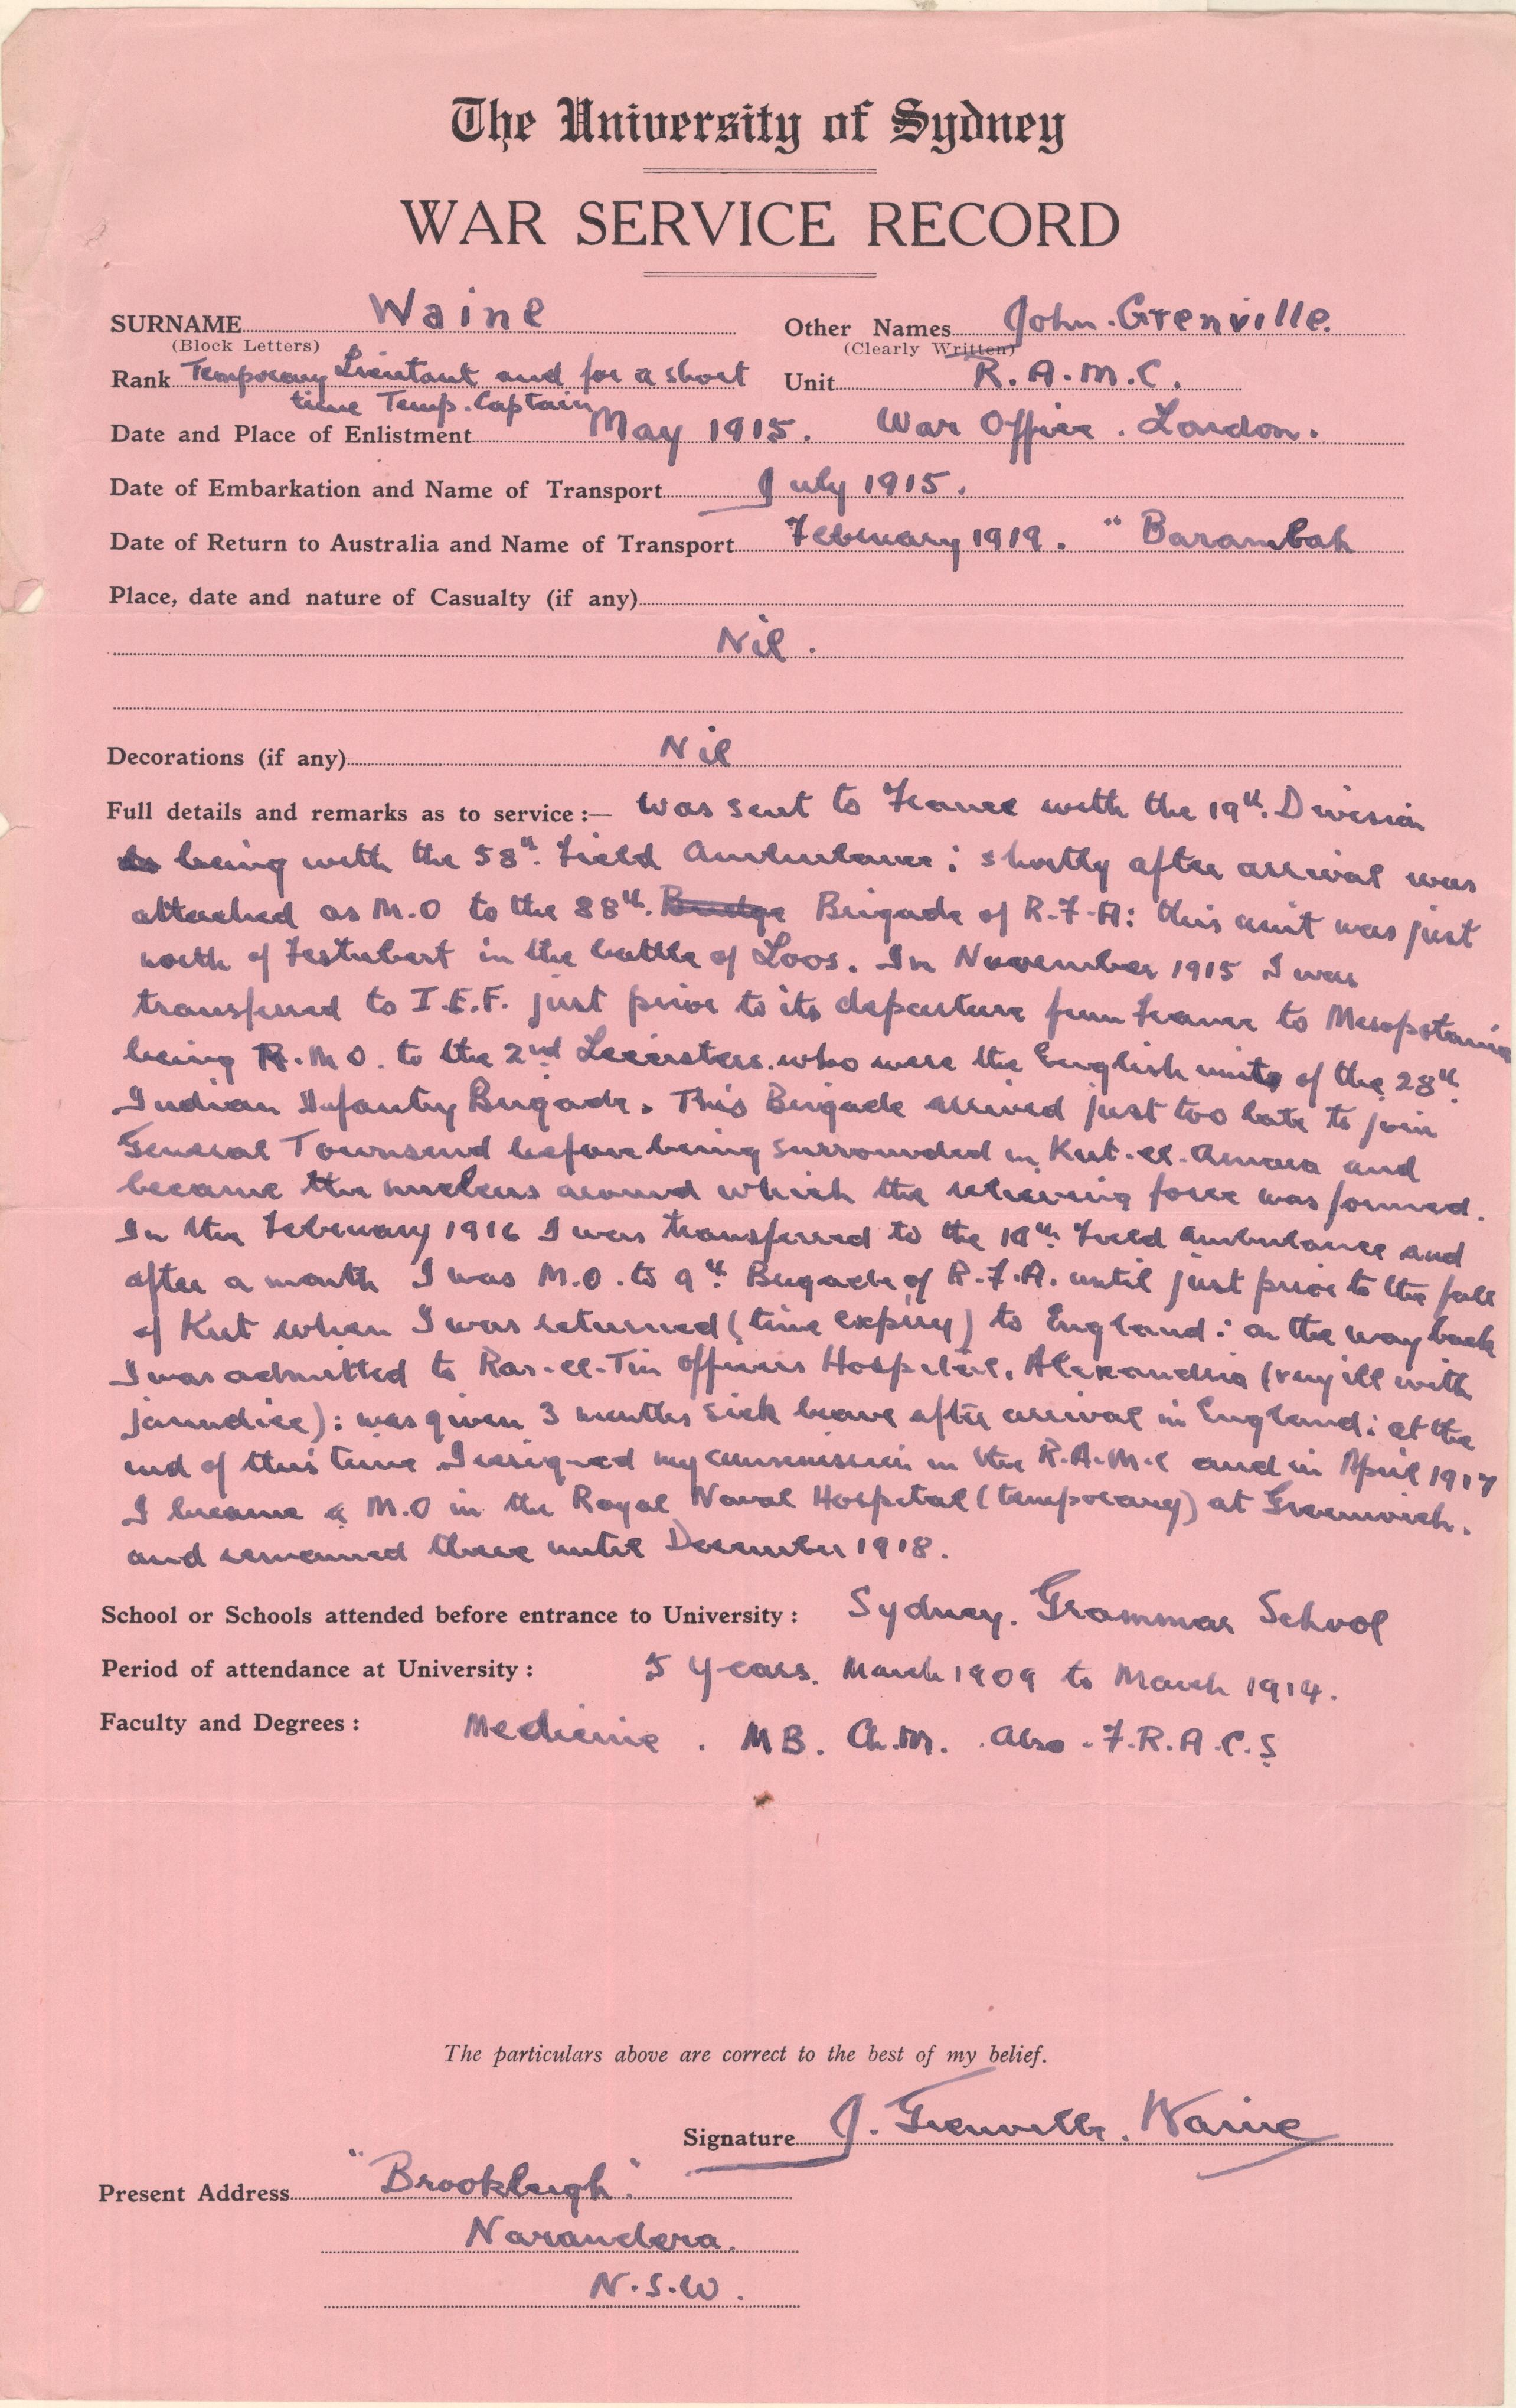 The University of Sydney
WAR SERVICE RECORD
SURNAME Waine Other Names John Grenville.
(Block Letters) (Clearly Written)
Rank Temporary Lieutant and for a short Unit R.A.M.C.
time Temp. Captain
Date and Place of Enlistment May 1915. War Office. London.
Date of Embarkation and Name of Transport July 1915.
Date of Return to Australia and Name of Transport February 1919. "Barambah
Place, date and nature of Casualty (if any)
Nil.
Decorations (if any) Nil
Full details and remarks as to service :— Was sent to France with the 19th. Division
being with the 58th. Field Ambulance; shortly after arrival was
attached as M.O to the 88th. Brigade of R.F.A: this unit was just
north of Festubert in the battle of Loos. In November 1915 I was
transferred to I.E.F. just prior to its departure from France to Mesopotamia
being R.M.O. to the 2nd Leicesters. who were the English units of the 28th
Indian Infantry Brigade. This Brigade arrived just too late to join
General Townsend before being surrounded in Kut-el-Amara and
became the nucleus around which the relieving force was formed.
In the February 1916 I was transferred to the 19th. Field Ambulance and
after a month I was M.O. to 9th Brigade of R.F.A. until just prior to the fall
of Kut when I was returned (time expiry) to England: on the way back
I was admitted to Ras-el-Tin Officers Hospital, Alexandria (very ill with
jaundice): was given 3 months sick leave after arrival in England: at the
end of this time I resigned my commission in the R.A.M.C and in April 1917
I became a M.O in the Royal Naval Hospital (temporary) at Greenwich.
and remained there until December 1918.
School or Schools attended before entrance to University : Sydney. Grammar School
Period of attendance at University : 5 years. March 1909 to March 1914.
Faculty and Degrees : Medicine. MB. Ch.M. Also. F.R.A.C.S
The particulars above are correct to the best of my belief.
Signature J. Grenville. Waine
Present Address "Brookleigh"
Narandera.
N.S.W.